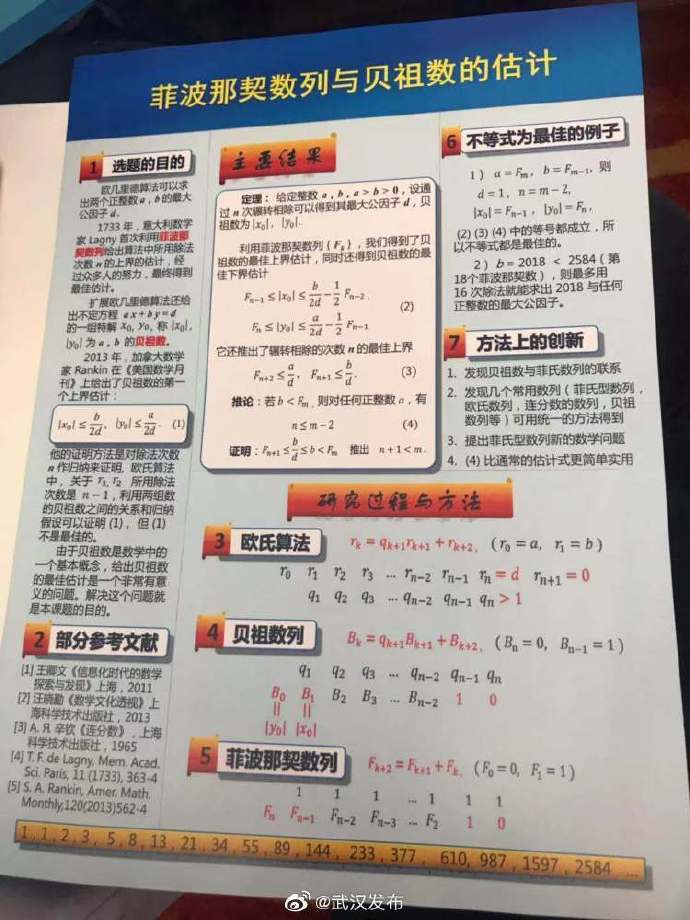 菲波那契数列与贝祖数的估计
1 选题的目的
欧几里德算法可以求
出两个正整数 a , b 的最大
公因子 d。
1733 年，意大利数学
家 Lagny 首次利用菲波那
契数列给出算法中所用除法
次数 n 的上界的估计，经
过众多人的努力，最终得到
最佳估计。
扩展欧几里德算法还给
出不定方程 ax+by=d
的一组特解 x₀, y₀, 称 |x₀|,
|y₀| 为 a , b 的贝祖数。
2013 年，加拿大数学
家 Rankin 在《美国数学月
刊》上给出了贝祖数的第一
个上界估计：
|x₀| ≤ b/2d, |y₀| ≤ a/2d. (1)
他的证明方法是对除法次数
n 作归纳来证明. 欧氏算法
中，关于 r₁, r₂ 所用除法
次数是 n − 1，利用两组数
的贝祖数之间的关系和归纳
假设可以证明 (1)，但 (1)
不是最佳的。
由于贝祖数是数学中的
一个基本概念，给出贝祖数
的最佳估计是一个非常有意
义的问题。解决这个问题就
是本课题的目的。
2 部分参考文献
[1] 王卿文《信息化时代的数学
探索与发现》上海，2011
[2] 汪晓勤《数学文化透视》上
海科学技术出版社，2013
[3] А. Я. 辛钦《连分数》，上海
科学技术出版社，1965
[4] T. F. de Lagny, Mem. Acad.
Sci. Paris, 11 (1733), 363-4
[5] S. A. Rankin, Amer. Math.
Monthly,120(2013)562-4
主要结果
定理：给定整数 a , b , a > b > 0，设通
过 n 次辗转相除可以得到其最大公因子 d，贝
祖数为 |x₀|, |y₀|.
利用菲波那契数列 {Fₖ}，我们得到了贝
祖数的最佳上界估计，同时还得到贝祖数的最
佳下界估计
Fₙ₋₁ ≤ |x₀| ≤ b/2d − 1/2 Fₙ₋₂ .
(2)
Fₙ ≤ |y₀| ≤ a/2d − 1/2 Fₙ₋₁
它还推出了辗转相除的次数 n 的最佳上界
Fₙ₊₂ ≤ a/d, Fₙ₊₁ ≤ b/d. (3)
推论：若 b < Fₘ, 则对任何正整数 a，有
n ≤ m − 2 (4)
证明：Fₙ₊₁ ≤ b/d ≤ b < Fₘ 推出 n + 1 < m .
6 不等式为最佳的例子
1 ) a = Fₘ, b = Fₘ₋₁, 则
d = 1, n = m − 2,
|x₀| = Fₙ₋₁ , |y₀| = Fₙ,
(2) (3) (4) 中的等号都成立，所
以不等式都是最佳的。
2 ) b = 2018 < 2584 ( 第
18个菲波那契数 )，则最多用
16 次除法就能求出 2018 与任何
正整数的最大公因子。
7 方法上的创新
1. 发现贝祖数与菲氏数列的联系
2. 发现几个常用数列（菲氏型数列，
欧氏数列，连分数的数列，贝祖
数列等）可用统一的方法得到
3. 提出菲氏型数列新的数学问题
4. (4) 比通常的估计式更简单实用
研究过程与方法
3 欧氏算法 rₖ = qₖ₊₁rₖ₊₁ + rₖ₊₂, ( r₀ = a, r₁ = b )
r₀ r₁ r₂ r₃ ... rₙ₋₂ rₙ₋₁ rₙ = d rₙ₊₁ = 0
q₁ q₂ q₃ ... qₙ₋₂ qₙ₋₁ qₙ > 1
4 贝祖数列 Bₖ = qₖ₊₁Bₖ₊₁ + Bₖ₊₂, ( Bₙ = 0, Bₙ₋₁ = 1 )
q₁ q₂ q₃ ... qₙ₋₂ qₙ₋₁ qₙ
B₀ B₁ B₂ B₃ ... Bₙ₋₂ 1 0
|| ||
|y₀| |x₀|
5 菲波那契数列 Fₖ₊₂ = Fₖ₊₁ + Fₖ, ( F₀ = 0, F₁ = 1 )
1 1 1 ... 1 1 1
Fₙ Fₙ₋₁ Fₙ₋₂ Fₙ₋₃ ... F₂ 1 0
1, 1, 2, 3, 5, 8, 13, 21, 34, 55, 89, 144, 233, 377, 610, 987, 1597, 2584 ...
@武汉发布